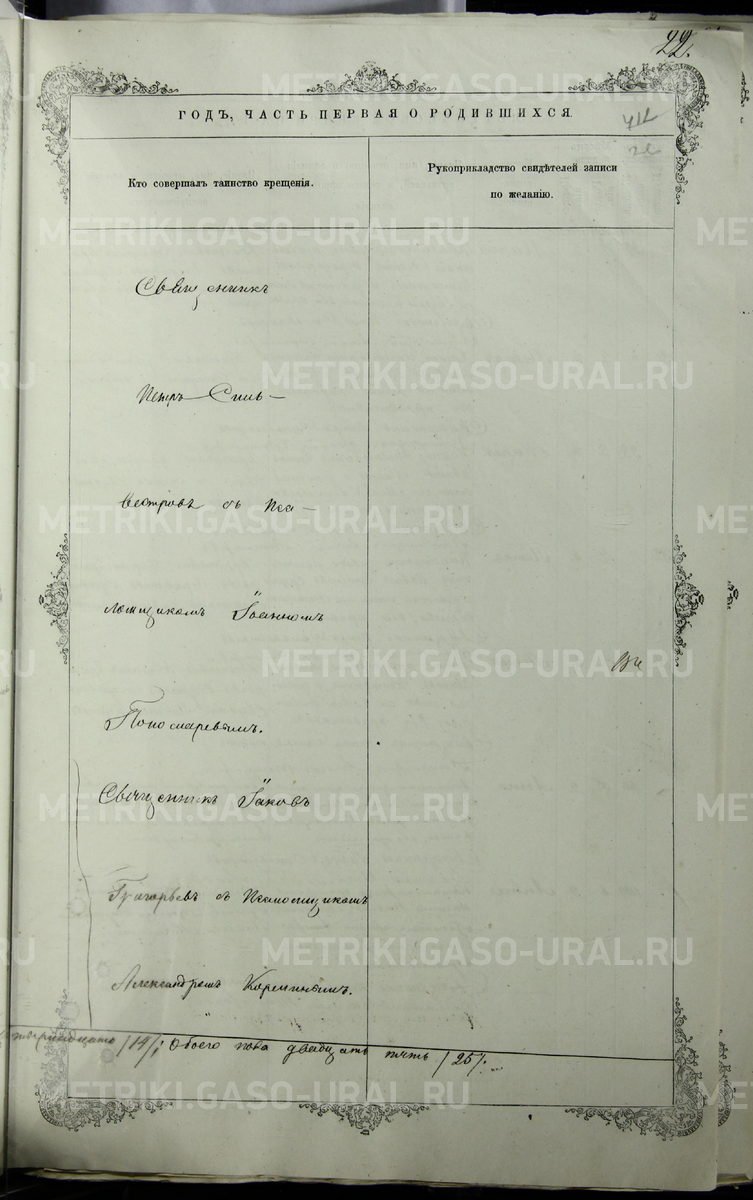 22.
ГОДЪ, ЧАСТЬ ПЕРВАЯ О РОДИВШИХСЯ.
412
22
Кто совершалъ таинство крещенія.
Рукоприкладство свидѣтелей записи
по желанію.
Священникъ
Петръ Силь-
вестровъ съ Пса-
ломщикомъ Іоанномъ
Пономаревымъ.
Священникъ Іаковъ
Григорьевъ съ Псаломщикомъ
Александромъ
четырнадцать /14/; Обоего пола двадцать пять /25/.
METRIKI.GASO-URAL.RU